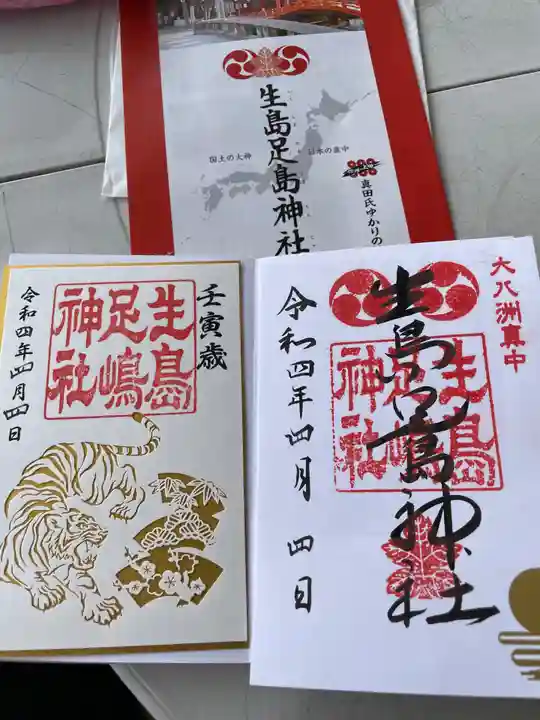 生島足島神社
国土の大神
日本の真中
真田氏ゆかりの
壬寅歳
生島足嶋神社
令和四年四月四日
大八洲真中
生島足島神社
生島足嶋神社
令和四年四月四日